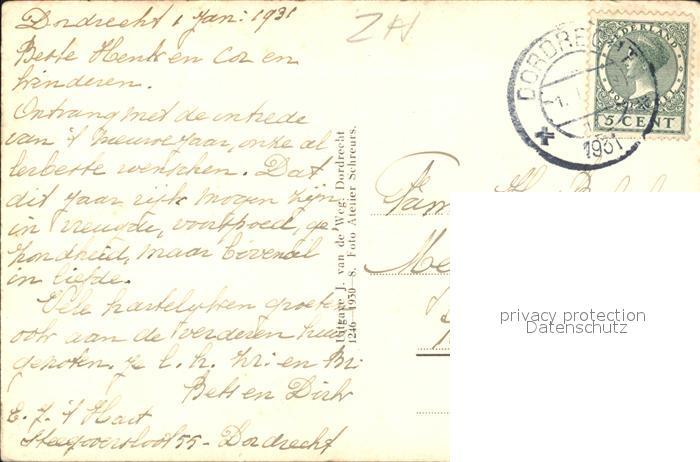 Dordrecht 1 Jan: 1931
Beste Henk en Cor en
kinderen.
Ontvang met de intrede
van 't nieuwe jaar, onze al
lerbeste wenschen. Dat
dit jaar rijk mogen zijn
in vreugde, voorspoed, ge
zondheid, maar bovenal
in liefde.
Vele hartelijken groeten
ook aan de verderen huis
genoten.
Bets en Dirk
E. J. 't Hart
55 - Dordrecht
ZH
Uitgave J. van de Weg. Dordrecht
1246—1930—8. Foto Atelier Schreurs.
NEDERLAND
5 CENT
DORDRECHT
1931
Fam
Me
privacy protection
Datenschutz